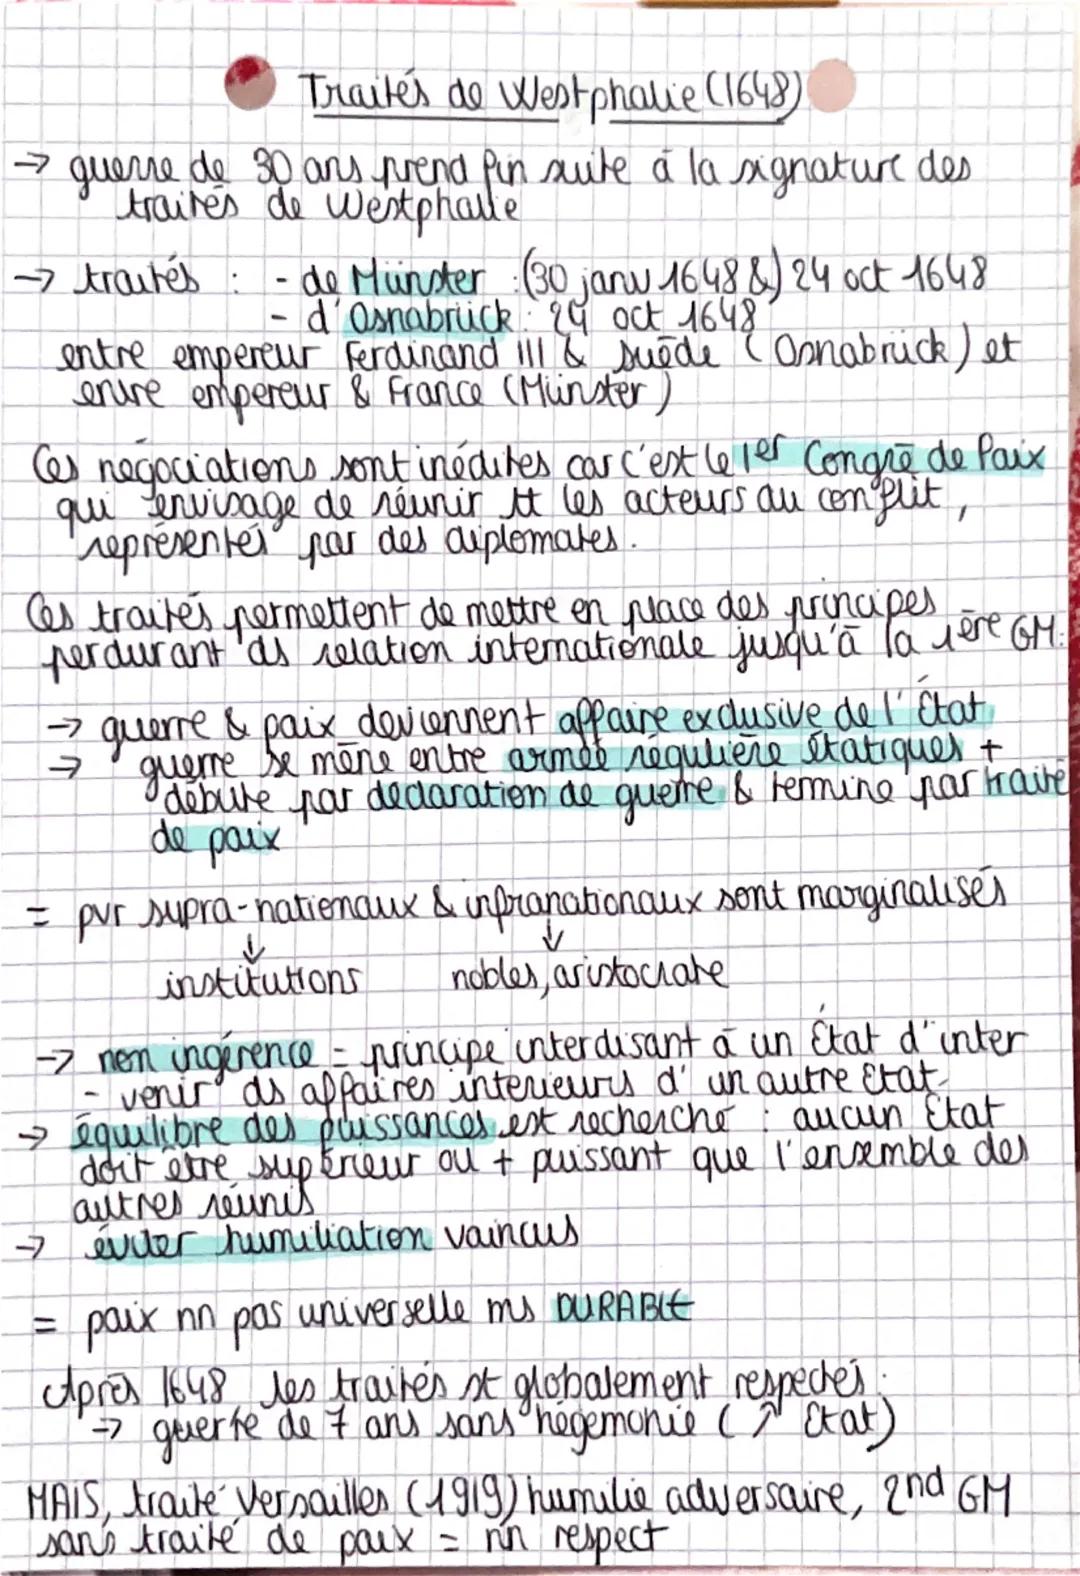 Traités de Westphalie (1648)
→ guerre de 30 ans prend fin suite à la signature des
traités de Westphalie
→ traités : - de Münster : (30 janv 1648 &) 24 oct 1648
- d'Osnabrück : 24 oct 1648
entre empereur Ferdinand III & Suède (Osnabrück) et
entre empereur & France (Münster)
Ces négociations sont inédites car c'est le 1er Congrè de Paix
qui envisage de réunir tt les acteurs du conflit,
représentés par des diplomates.
Ces traités permettent de mettre en place des principes
perdurant ds relation internationale jusqu'à la 1ère GM :
→ guerre & paix deviennent affaire exclusive de l'État
→ guerre se mène entre armée régulière étatiques +
débute par déclaration de guerre & termine par traité
de paix
= pvr supra-nationaux & infranationaux sont marginalisés
↓ ↓
institutions nobles, aristocrate
→ non ingérence = principe interdisant à un État d'inter
- venir ds affaires intérieurs d'un autre État.
→ équilibre des puissances est recherché : aucun État
doit être supérieur ou + puissant que l'ensemble des
autres réunis
→ éviter humiliation vaincus
= paix nn pas universelle ms DURABLE
Après 1648 les traités st globalement respectés :
→ guerre de 7 ans sans hégémonie (↗ État)
MAIS, traité Versailles (1919) humilie adversaire, 2nd GM
sans traité de paix = nn respect